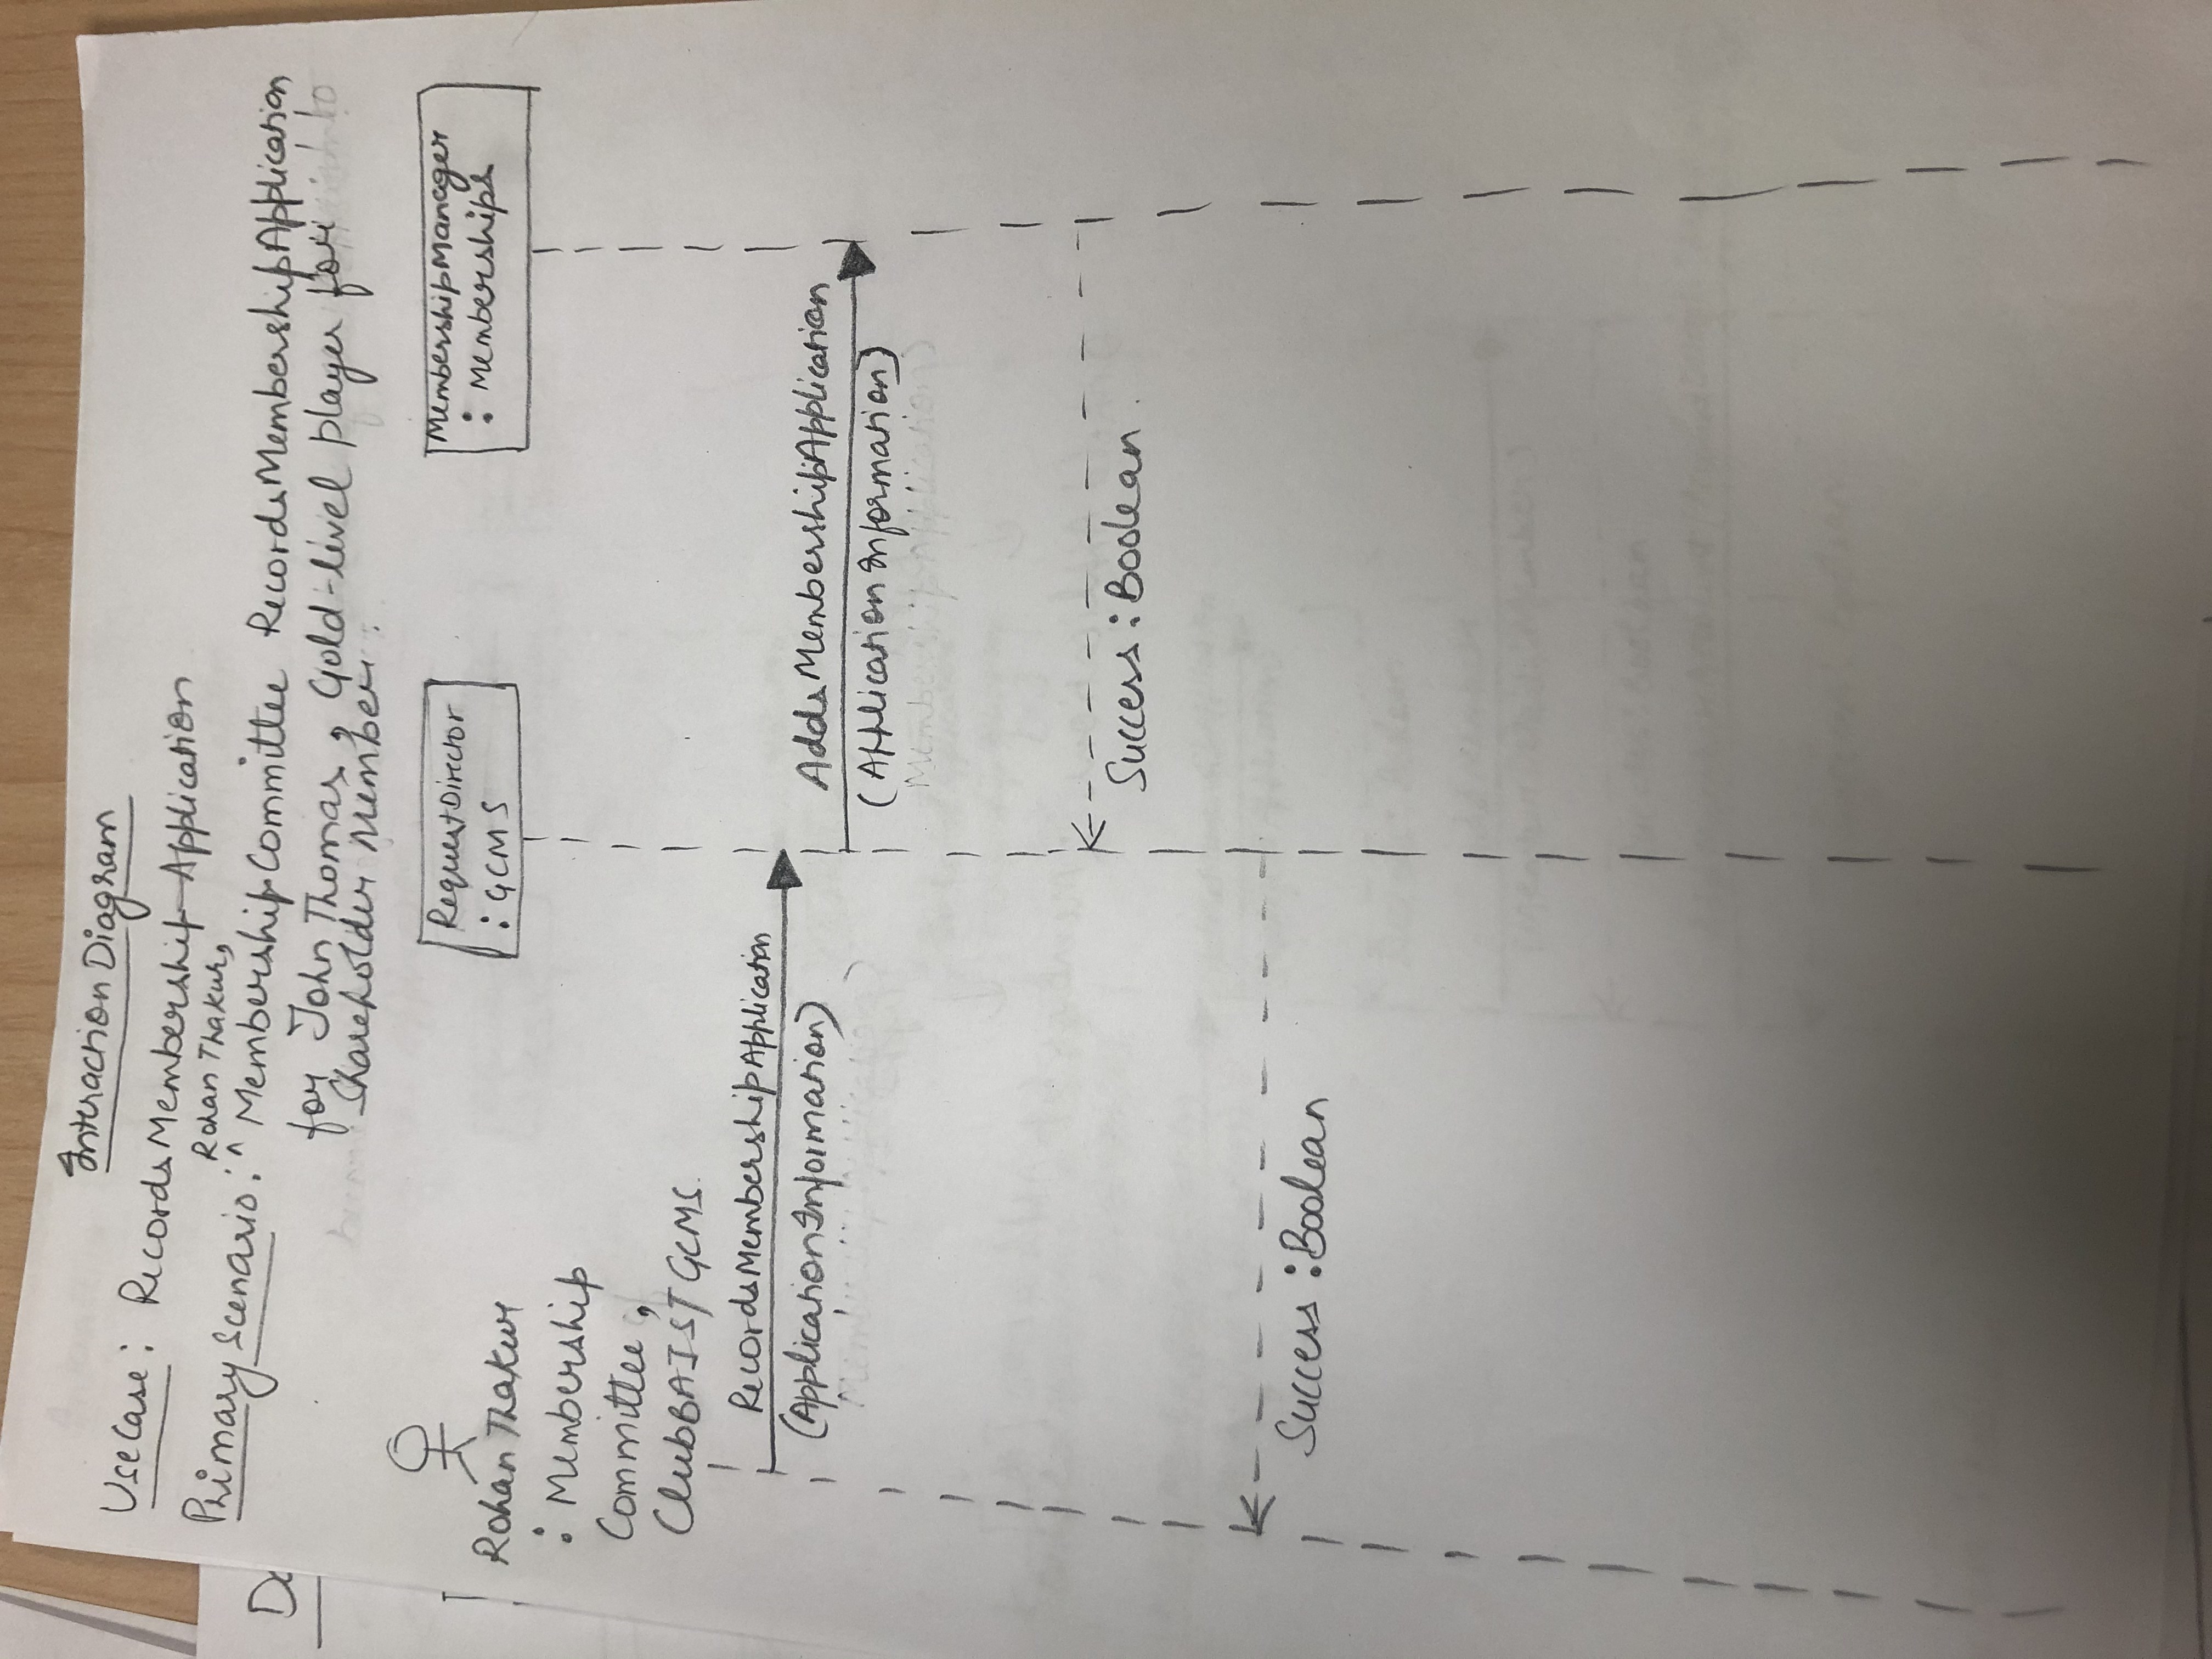 Interaction Diagram
UseCase: RecordsMembershipApplication
Rohan Thakur,
Primary Scenario: ^ Membership Committee RecordsMembershipApplication
for John Thomas, Gold-level player for
Shareholder Member.
Rohan Thakur
: Membership
Committee,
ClubBAIST GCMS.
RequestDirector
: GCMS
MembershipManager
: Memberships
RecordsMembershipApplication
(ApplicationInformation)
AddsMembershipApplication
(ApplicationInformation)
Success: Boolean.
Success: Boolean